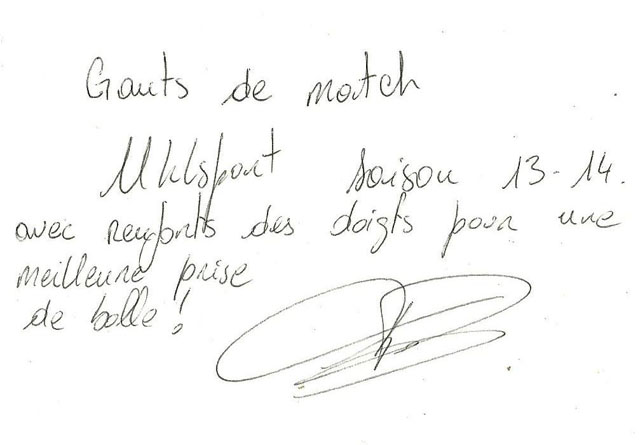 Gants de match
Uhlsport saison 13-14.
avec renforts des doigts pour une
meilleure prise
de balle !